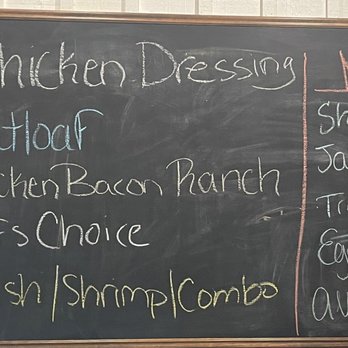 hicken Dressing
atloaf
icken Bacon Ranch
Fs Choice
sh/Shrimp/Combo
Sh
Ja
Tr
Eg
au